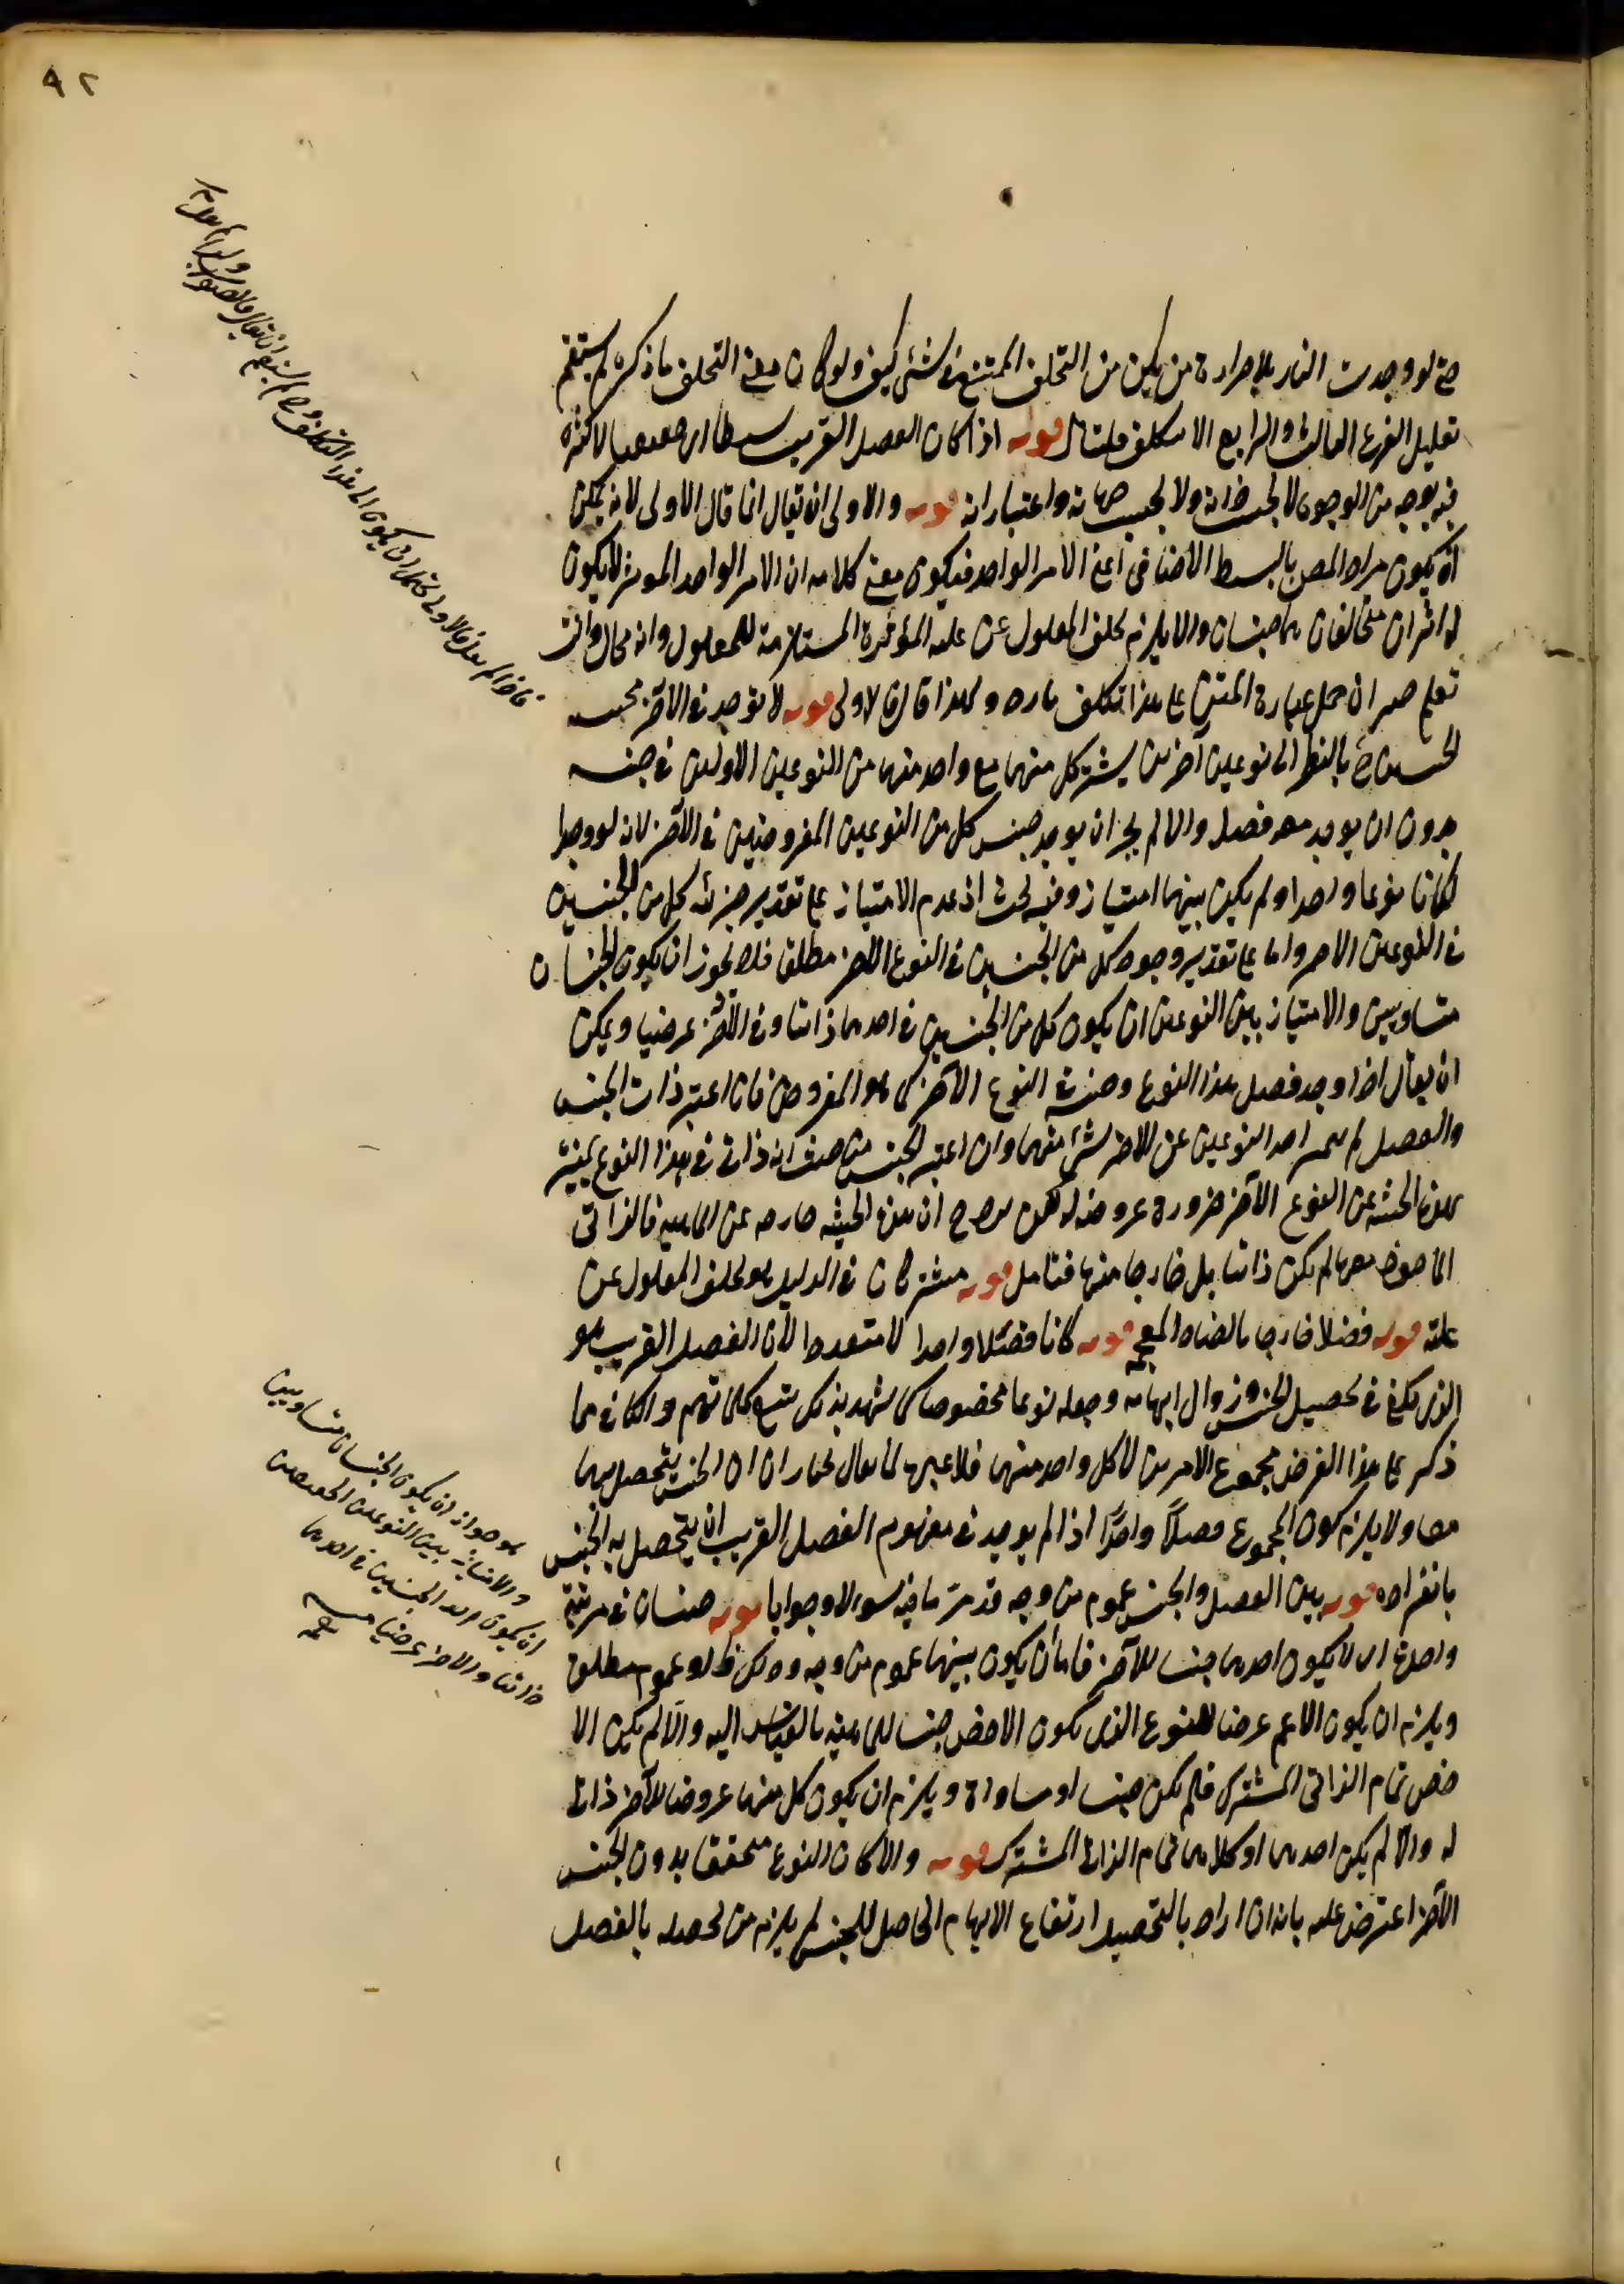 ٩٢
حتى لو وجدت النار بلا حرارة من يكن من التخلف الممتنع في شئ كيف ولو كان معنى التخلف ما ذكره لم يستقم
تعليل الفرع الثالث والرابع الا بتكلف فليتأمل قوله اذا كان الفصل القريب بسيطا اى لا كثرة
فيه بوجه من الوجوه لا بحسب ذاته ولا بحسب جهاته واعتباراته قوله والاولى ان يقال انما قال الاولى لانه يمكن
ان يكون مراد المص بالبسيط الاضافى اعنى الامر الواحد فيكون معنى كلامه ان الامر الواحد الموثر لا يكون
له اثران متخالفان هما جنسان والا يلزم تخلف المعلول عن علته المؤثرة المستلزمة للمعلول وانه محال وانت
تعلم ان حمل عبارة المتن على هذا تكلف بارد ولهذا قال الاولى قوله لا يوجد في الآخر
بالنظر الى نوعين آخرين يشترك كل منهما مع واحد منهما من النوعين الاولين في جنسه
بدون ان يوجد معه فصله والا لم يجز ان يوجد جنس كل من النوعين المفروضين في الآخر لانه لو وجدا
لكانا نوعا واحدا ولم يكن بينهما امتياز وفيه بحث اذ عدم الامتياز على تقدير جزئية كل من الجنسين
في النوعين واما على تقدير وجود كل من الجنسين في النوع الآخر مطلقا فلا لجواز ان يكون الجنسان
متساويين والامتياز بين النوعين ان يكون كل من الجنسين في احدهما ذاتيا وفي الآخر عرضيا ويمكن
ان يقال اذا وجد فصل هذا النوع وجنسه في النوع الآخر كما هو المفروض فان اعتبر ذات الجنس
والفصل لم يتميز احد النوعين عن الآخر بشئ منهما وان اعتبر الجنس من حيث انه ذاتى في هذا النوع يتميز
بهذه الحيثية عن النوع الآخر ضرورة عروضه له لكن ان هذه الحيثية خارجة عن الماهية فالذاتى
المأخوذ معها لم يكن ذاتيا بل خارجا منها فتأمل قوله مشتركان في الدليل هو تخلف المعلول عن
علته قوله فضلا خارجا بالضاد المعجمه قوله كانا فصلا واحدا لا متعددا لان الفصل القريب هو
الذى يكفى في تحصيل الجنس وزوال ابهامه وجعله نوعا مخصوصا كما يشهد بذلك تتبع كلماتهم والكافى مما
ذكر على هذا الفرض مجموع الامرين لا كل واحد منهما فلا لا يقال نختار ان الجنس يتحصل بهما
معا ولا يلزم كون المجموع فصلا واحدا اذ لم يوجد في مفهوم الفصل القريب ان يتحصل به الجنس
بانفراده قوله بين الفصل والجنس عموم من وجه قد مر ما فيه سوالا وجوابا قوله جنسان في مرتبة
واحدة اى لا يكون احدهما جنسا للآخر فاما ان يكون بينهما عموم من وجه وذلك ظ او عموم مطلق
ويلزم ان يكون الاعم عرضا للنوع الذى يكون الاخص جنسا للماهية بالقياس اليه والا لم يكن الا
خص تمام الذاتى المشترك فلم يكن جنسا او مساواة ويلزم ان يكون كل منهما عروضا للآخر ذاتيا
له والا لم يكن احدهما او كلاهما تمام الذاتى المشترك قوله والا لكان النوع متحققا بدون الجنس
الآخر اعترض عليه بانه ان اراد بالتحصيل ارتفاع الابهام الحاصل للجنس لم يلزم من تحصله بالفصل
هو جواز ان يكون الجنسان متساويين
والامتياز بين النوعين
ان يكون احد الجنسين في احدهما
ذاتيا والآخر عرضيا